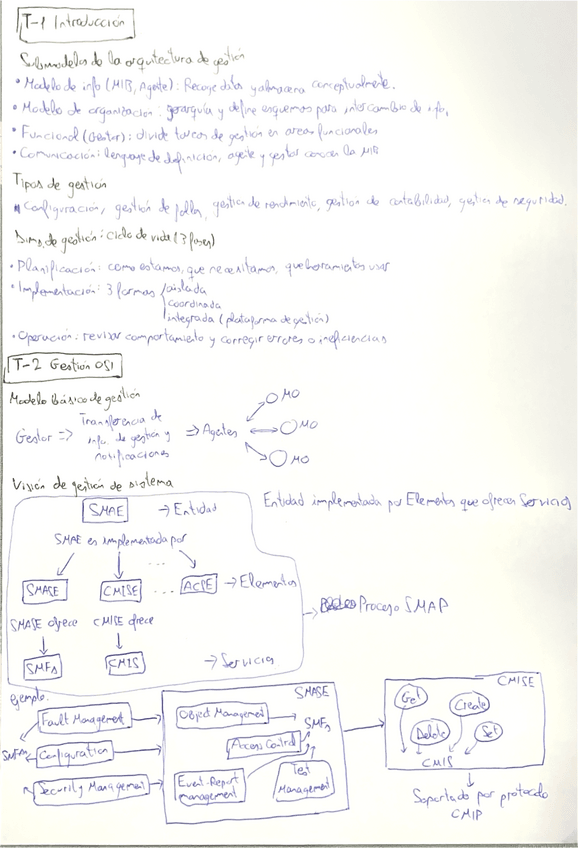 T-1 Introducción
Submodelos de la arquitectura de gestión
• Modelo de info (MIB, Agente): Recoge datos y almacena conceptualmente.
• Modelo de organización: jerarquía y define esquemas para intercambio de info.
• Funcional (Gestor): divide tareas de gestión en areas funcionales
• Comunicación: lenguaje de definicion, agente y gestor conocen la MIB
Tipos de gestión
Configuración, gestión de fallos, gestion de rendimiento, gestion de contabilidad, gestion de seguridad.
de gestión: Ciclo de vida (3 fases)
• Planificación: como estamos, que necesitamos, que herramientas usar
• Implementación: 3 formas aislada
coordinada
integrada (plataforma de gestión)
• Operación: revisar comportamiento y corregir errores o ineficiencias
T-2 Gestión OSI
Modelo básico de gestión
Gestor => Transferencia de
info. de gestión y
notificaciones
=> Agentes
MO
MO
MO
Visión de gestión de sistema
SMAE → Entidad
Entidad implementada por Elementos que ofrecen Servicios
SMAE es implementada por
SMASE CMISE ... ACSE → Elementos
→ Proceso SMAP
SMASE ofrece CMISE ofrece
SMFs CMIS → Servicios
Ejemplo:
Fault Management
SMFAs
Configuration
Security Management
SMASE
Object Management
SMFs
Access Control
Event-Report
management
Test
Management
CMISE
Get
Create
Delete
Set
CMIS
Soportado por protocolo
CMIP